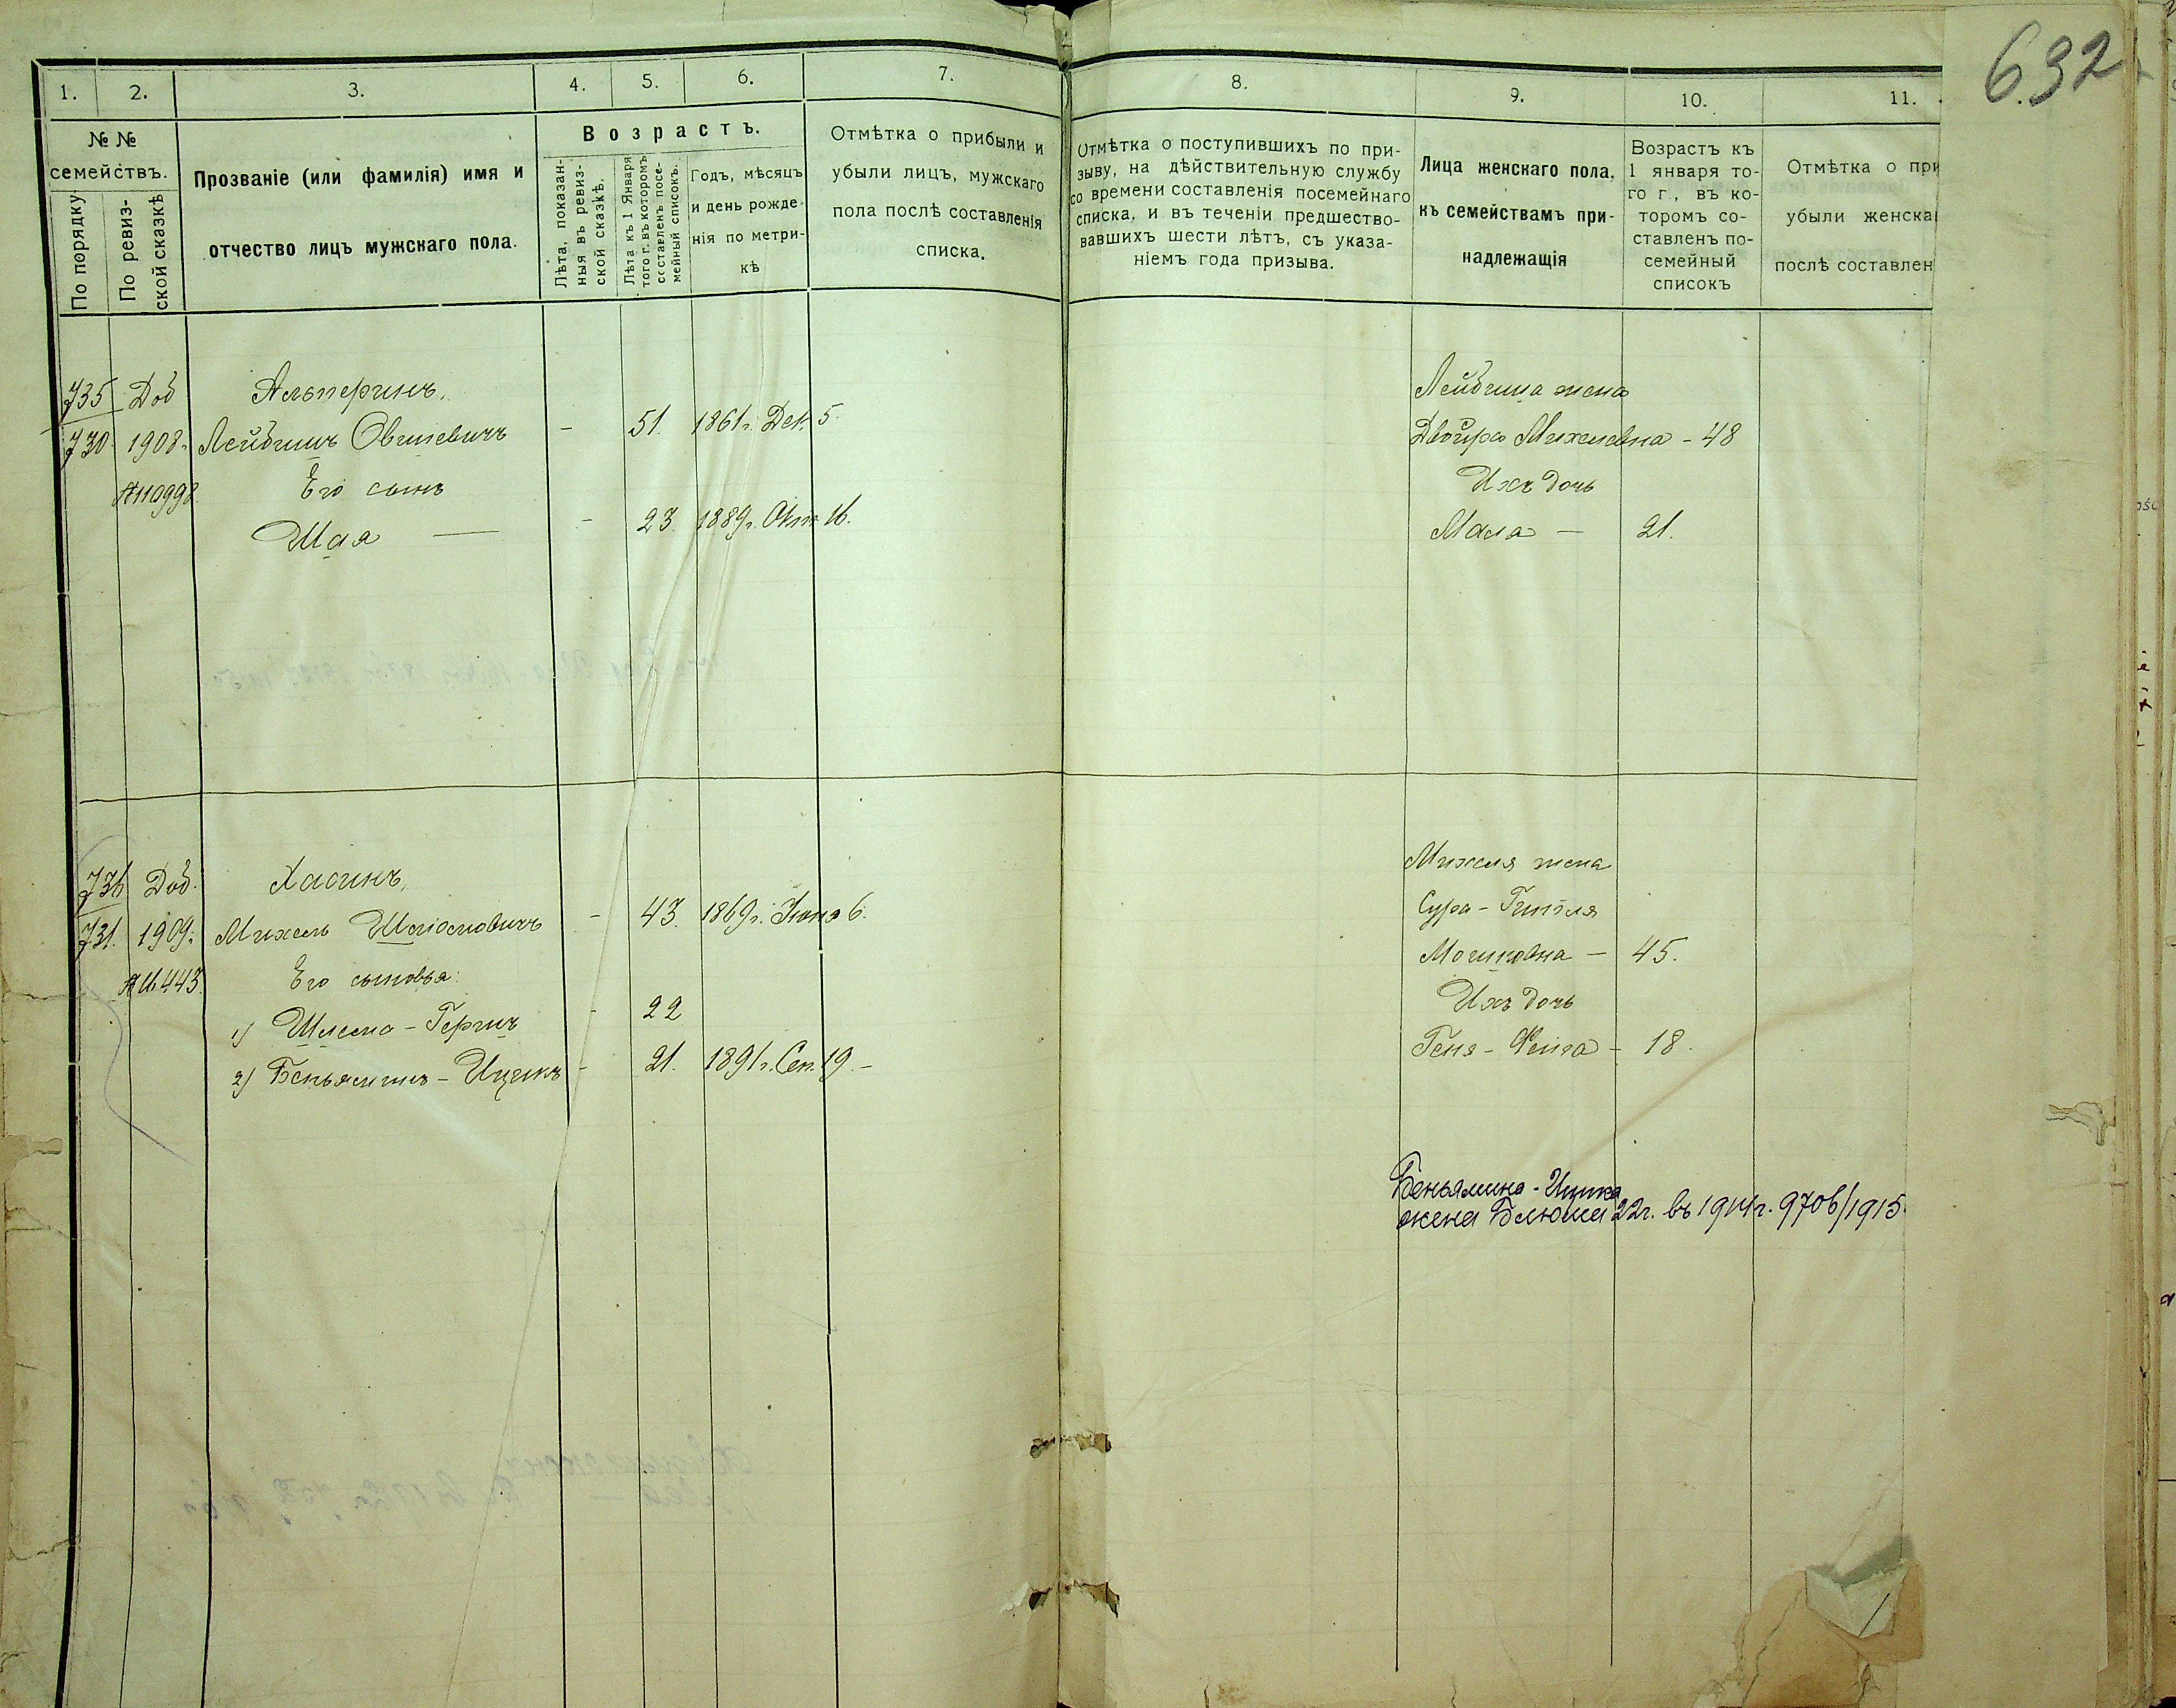 632
1. 2. 3. 4. 5. 6. 7. 8. 9. 10. 11.
№ №
семействъ.
По порядку
По ревиз-
ской сказкѣ
Прозваніе (или фамилія) имя и
отчество лицъ мужскаго пола.
Возрастъ.
Лѣта, показан-
ныя въ ревиз-
ской сказкѣ.
Лѣта къ 1 Января
того г. въ которомъ
составленъ посе-
мейный списокъ.
Годъ, мѣсяцъ
и день рожде-
нія по метри-
кѣ
Отмѣтка о прибыли и
убыли лицъ, мужскаго
пола послѣ составленія
списка.
Отмѣтка о поступившихъ по при-
зыву, на дѣйствительную службу
со времени составленія посемейнаго
списка, и въ теченіи предшество-
вавшихъ шести лѣтъ, съ указа-
ніемъ года призыва.
Лица женскаго пола,
къ семействамъ при-
надлежащія
Возрастъ къ
1 января то-
го г., въ ко-
торомъ со-
ставленъ по-
семейный
списокъ
Отмѣтка о при
убыли женска
послѣ составлен
735 Доб Альперинъ,
730 1908г. Лейбишъ Овшіевичъ - 51. 1861г. Дек. 5.
№10998 Его сынъ
Шая — - 23. 1889г. Окт. 16.
Лейбиша жена
Двойра Михелевна - 48
Ихъ дочь
Мала — 21.
736 Доб. Хасинъ,
731. 1909г. Михель Шліомовичъ - 43. 1869г. Іюня 6.
№11443. Его сыновья:
1) Шлема-Гершъ - 22
2) Беньяминъ-Ицикъ - 21. 1891г. Сен. 19. -
Михеля жена
Сура-Гитля
— 45.
Ихъ дочь
Геня-Фейга - 18.
Беньямина-Ицика
жена Блюма 22г. въ 1914г. 9706/1915.